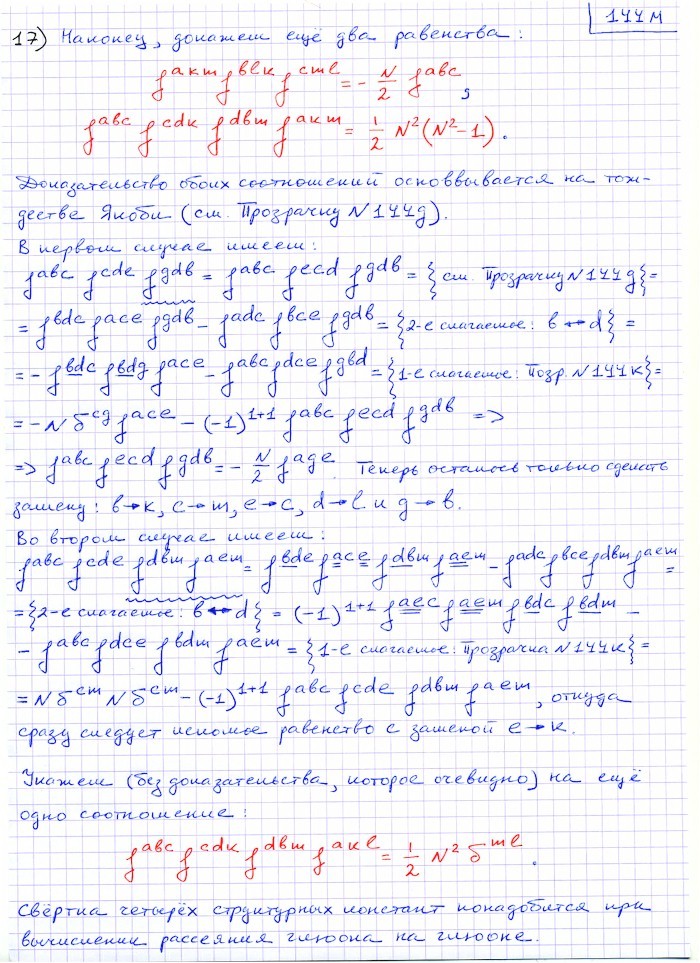 144м
17) Наконец, докажем ещё два равенства:
f^{akm} f^{blk} f^{cml} = - N/2 f^{abc},
f^{abc} f^{cdk} f^{dbm} f^{akm} = 1/2 N^2 (N^2-1).
Доказательство обоих соотношений основвывается на тож-
дестве Якоби (см. Прозрачку N 144д).
В первом случае имеем:
f^{abc} f^{cde} f^{gdb} = f^{abc} f^{ecd} f^{gdb} = {см. Прозрачку N 144д} =
= f^{bdc} f^{ace} f^{gdb} - f^{adc} f^{bce} f^{gdb} = {2-е слагаемое: b ↔ d} =
= - f^{bdc} f^{bdg} f^{ace} - f^{abc} f^{dce} f^{gbd} = {1-е слагаемое: Позр. N 144к} =
= - N δ^{cg} f^{ace} - (-1)^{1+1} f^{abc} f^{ecd} f^{gdb} =>
=> f^{abc} f^{ecd} f^{gdb} = - N/2 f^{age}. Теперь осталось только сделать
замену: b→k, c→m, e→c, d→l и g→b.
Во втором случае имеем:
f^{abc} f^{cde} f^{dbm} f^{aem} = f^{bde} f^{ace} f^{dbm} f^{aem} - f^{adc} f^{bce} f^{dbm} f^{aem} =
= {2-е слагаемое: b ↔ d} = (-1)^{1+1} f^{aec} f^{aem} f^{bdc} f^{bdm} -
- f^{abc} f^{dce} f^{bdm} f^{aem} = {1-е слагаемое: Прозрачка N 144к} =
= N δ^{cm} N δ^{cm} - (-1)^{1+1} f^{abc} f^{cde} f^{dbm} f^{aem}, откуда
сразу следует искомое равенство с заменой e→k.
Укажем (без доказательства, которое очевидно) на ещё
одно соотношение:
f^{abc} f^{cdk} f^{dbm} f^{akl} = 1/2 N^2 δ^{ml}.
Свёртка четырёх структурных констант понадобится при
вычислении рассеяния глюона на глюоне.